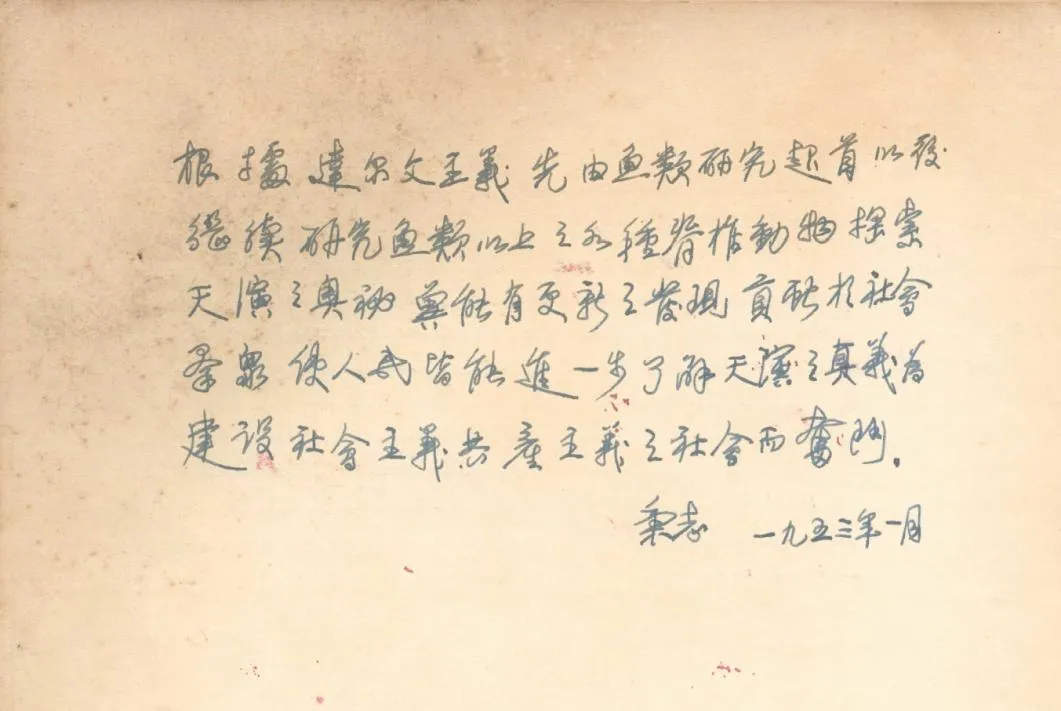 根據達尔文主義先由魚類研究起首以後
繼續研究魚類以上之各種脊椎動物探索
天演之奧祕冀能有更新之發現貢献於社會
羣眾使人民皆能進一步了解天演之真義為
建設社會主義共產主義之社會而奮鬥.
秉志 一九五三年一月